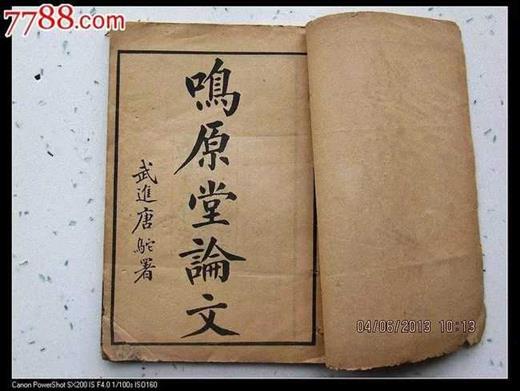 7788.com
鳴原堂論文
武進唐駝署
04/06/2013 10:13
Canon PowerShot SX200 IS F4.0 1/100s ISO160